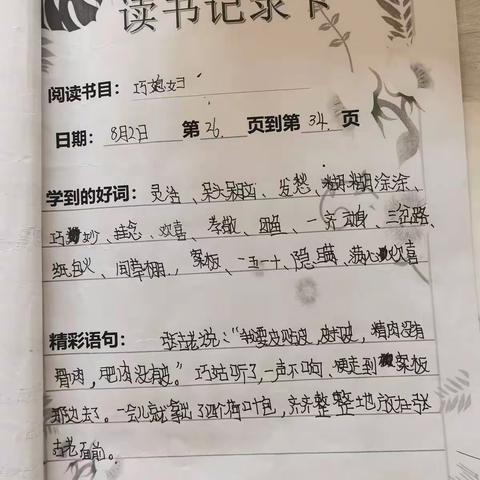 读书记录卡
阅读书目：巧媳妇
日期：8月2日 第26页到第34页
学到的好词：灵活、呆头呆脑、发愁、糊糊涂涂、
巧妙、挂念、欢喜、孝敬、回、一齐动身、三岔路、
纸包火、闻草棚、案板、一五一十、隐瞒、满心欢喜
精彩语句：张古老说："我要皮贴皮，皮打皮，精肉没有
骨肉，肥肉没有皮。"巧姑听了，一声不响，便走到案板
那边去了。一会儿就拿出了四个荷叶包，齐齐整整地放在张
古老面前。